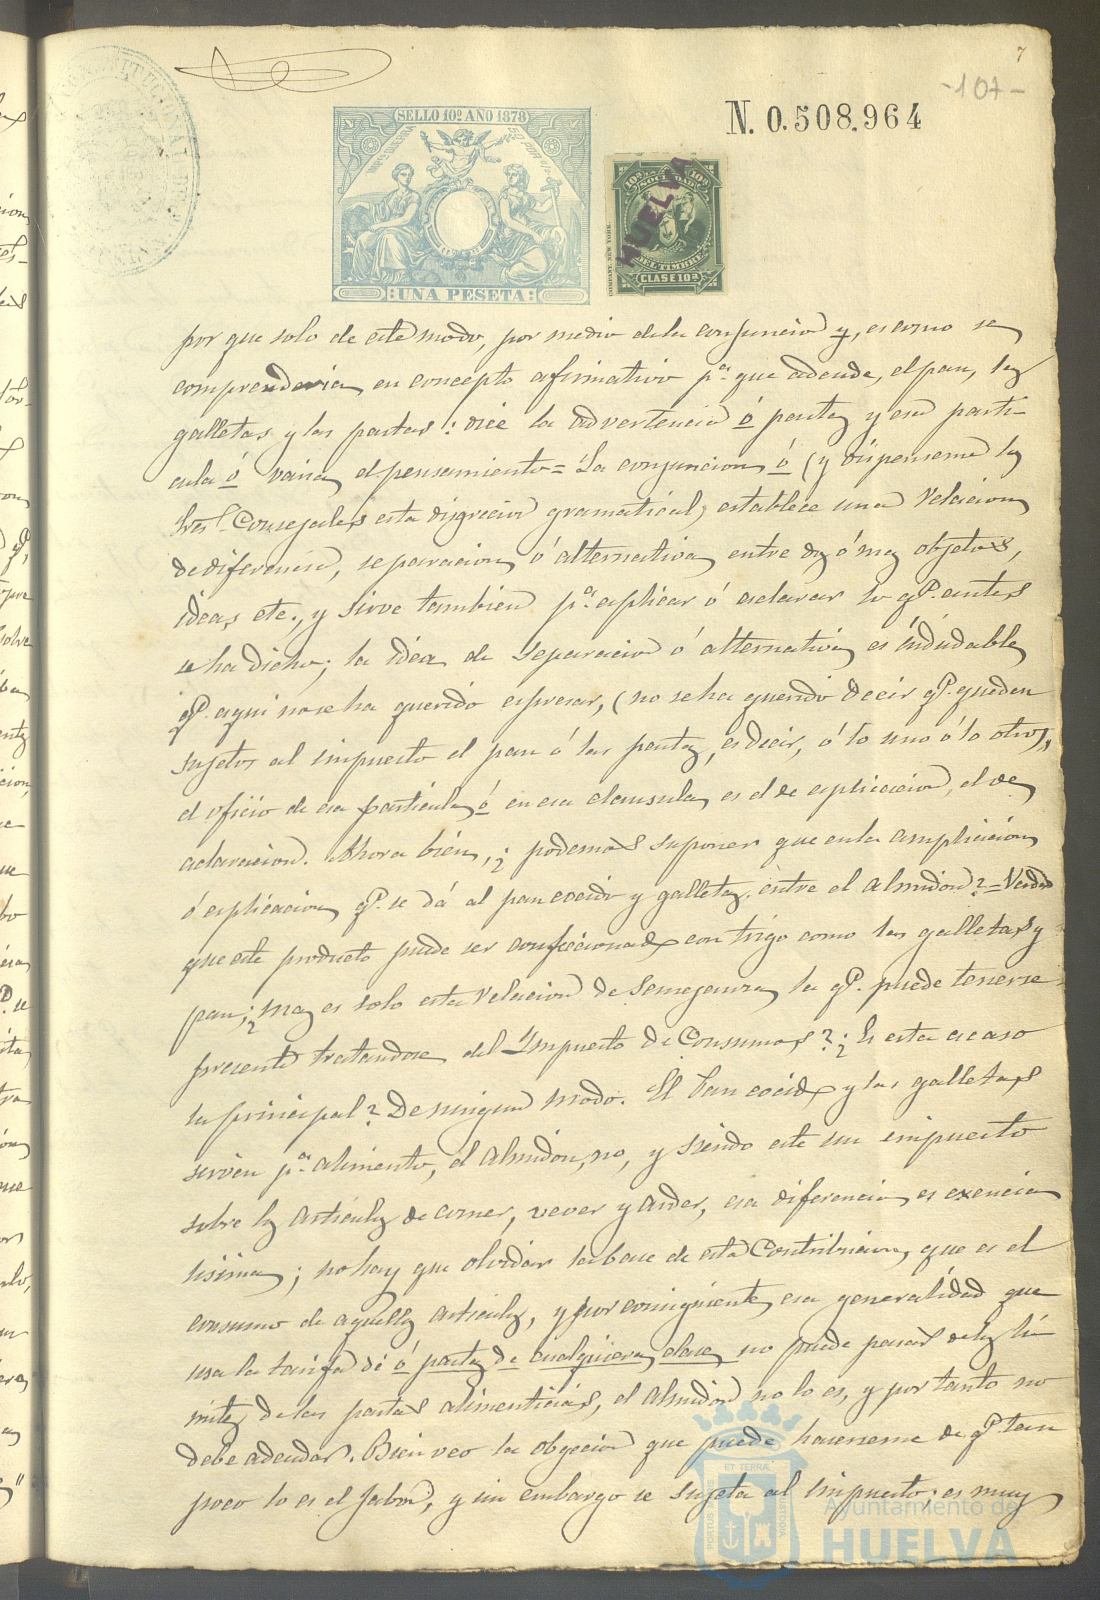 7
-107-
N. 0.508.964
SELLO 10º AÑO 1878
UNA PESETA
10ª 10ª
SOCIEDAD
DEL TIMBRE
CLASE 10ª
HUELVA
por que solo de este modo, por medio de la conjuncion y, es como se
comprenderia en concepto afirmativo pª que adeude, el pan, las
galletas y las pastas: dice la advertencia ó pastas y esa parti-
cula ó varia el pensamiento = La conjuncion ó (y dispenseme los
Sres. Consejales esta digrecion gramatical) establece una relacion
de diferencia, separacion ó alternativa entre dos ó mas objetos,
ideas etc., y sirve tambien pª esplicar ó aclarar lo qe. antes
se ha dicho; la idea de separacion ó alternativa es indudable
qe. aqui no se ha querido espresar, (no se ha querido decir qe. queden
sujetos al impuesto el pan ó las pastas, es decir, ó lo uno ó lo otro),
el oficio de esa particula ó en esa clausula es el de esplicacion, el de
aclaracion. Ahora bien, ¿podemos suponer que en la ampliacion
ó esplicacion qe. se dá al pan cocido y galletas entre el almidon? = Verdad
que este producto puede ser confeccionado con trigo como las galletas y
pan; ¿mas es solo esta relacion de semejanza la qe. puede tenerse
presente tratandose del Impuesto de Consumos? ¿Es esta acaso
la principal? De ningun modo. El Pan cocido y las galletas
sirven pª alimento, el almidon, no, y siendo este un impuesto
sobre los articulos de comer, vever y arder, esa diferencia es exencia
lisima; no hay que olvidar la base de esta Contribucion, que es el
consumo de aquellos articulos, y por consiguiente esa generalidad que
usa la tarifa de ó pastas de cualquiera clase no puede pasar de los lí
mites de las pastas alimenticias, el almidon no lo es, y por tanto no
debe adeudar. Bien veo la obgecion que puede hacerseme de qe. tam
poco lo es el jabon, y sin embargo se sujeta al impuesto; es muy
Ayuntamiento de
HUELVA